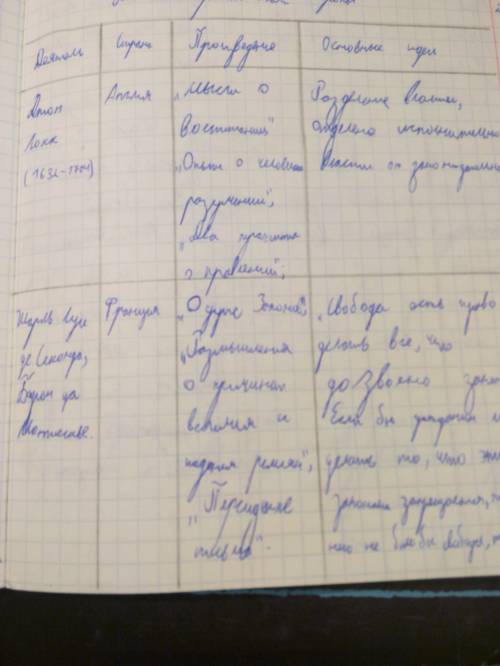 Деятели Страна Произведение Основные идеи
Джон Англия „Мысли о Разделение власти,
Локк воспитании" отделена исполнительно
(1632-1704) „Опыт о человеч власти от законодательно
разумении",
„Два трактата
о правлении",
Шарль Луи Франция „О духе Законов", „Свобода есть право
де Секонда, „Размышления делать все, что
Барон де о причинах дозволено зако
Монтескье. величия и Если бы гражданин
падения римлян", делать то, что эти
„Персидские законами запрещается, то
письма". него не было бы свободы, т